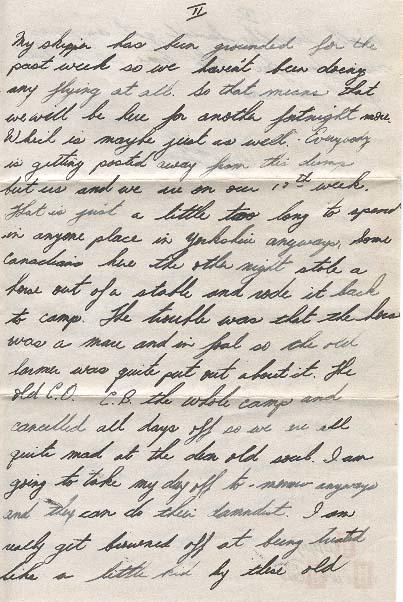 II
My skipper has been grounded for the
past week so we haven't been doing
any flying at all. So that means that
we will be here for another fortnight more.
Which is maybe just as well. Everybody
is getting posted away from this dump
but us and we are on our week.
That is just a little too long to spend
in anyone place in Yorkshire anyways. Some
Canadians here the other night stole a
horse out of a stable and rode it back
to camp. The trouble was that the horse
was a mare and in foal so the old
farmer was quite put out about it. The
old C.O. C.B. the whole camp and
cancelled all days off so we are all
quite mad at the dear old soul. I am
going to take my day off to-morrow anyways
and they can do their damndest. I am
really get browned off at being treated
like a little kid by these old